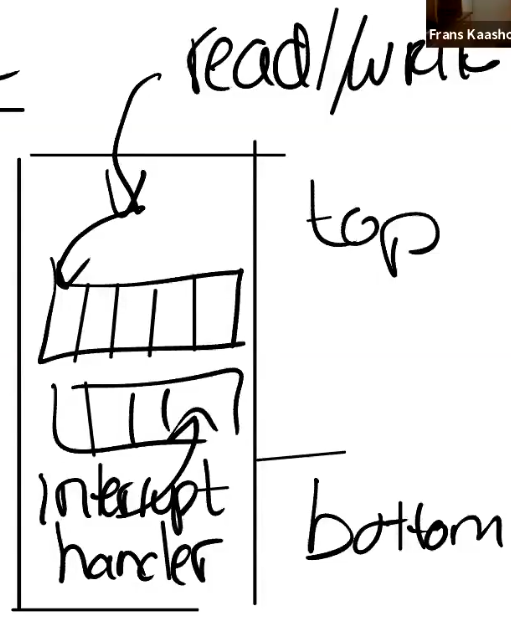 Frans Kaasho
read/write
top
interrupt
handler
bottom